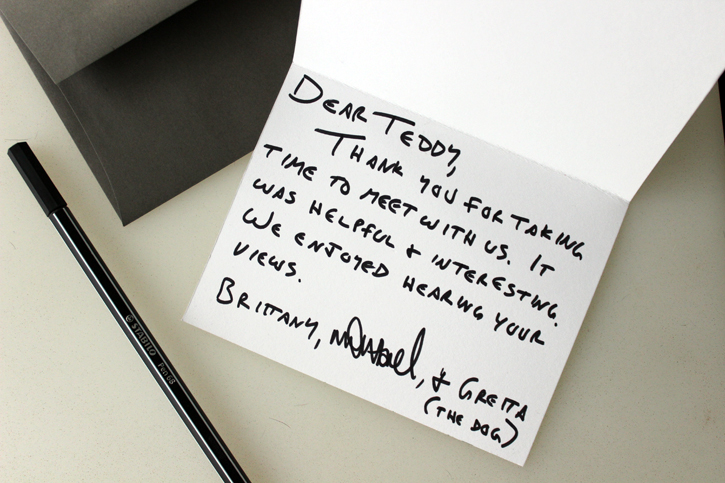 DEAR TEDDY,
THANK YOU FOR TAKING
TIME TO MEET WITH US. IT
WAS HELPFUL & INTERESTING.
WE ENJOYED HEARING YOUR
VIEWS.
BRITTANY, MICHAEL, & GRETTA
(THE DOG)
STABILO Pen 68